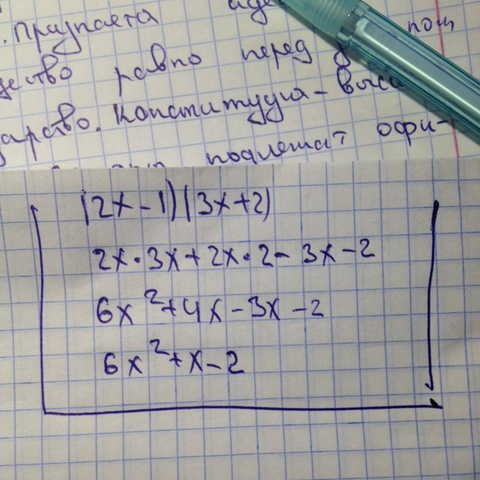 . Празпаета
ство равно перед пом
дарство. Конституция – выс
подлежат офи-
(2x-1)(3x+2)
2x·3x+2x·2-3x-2
6x²+4x-3x-2
6x²+x-2